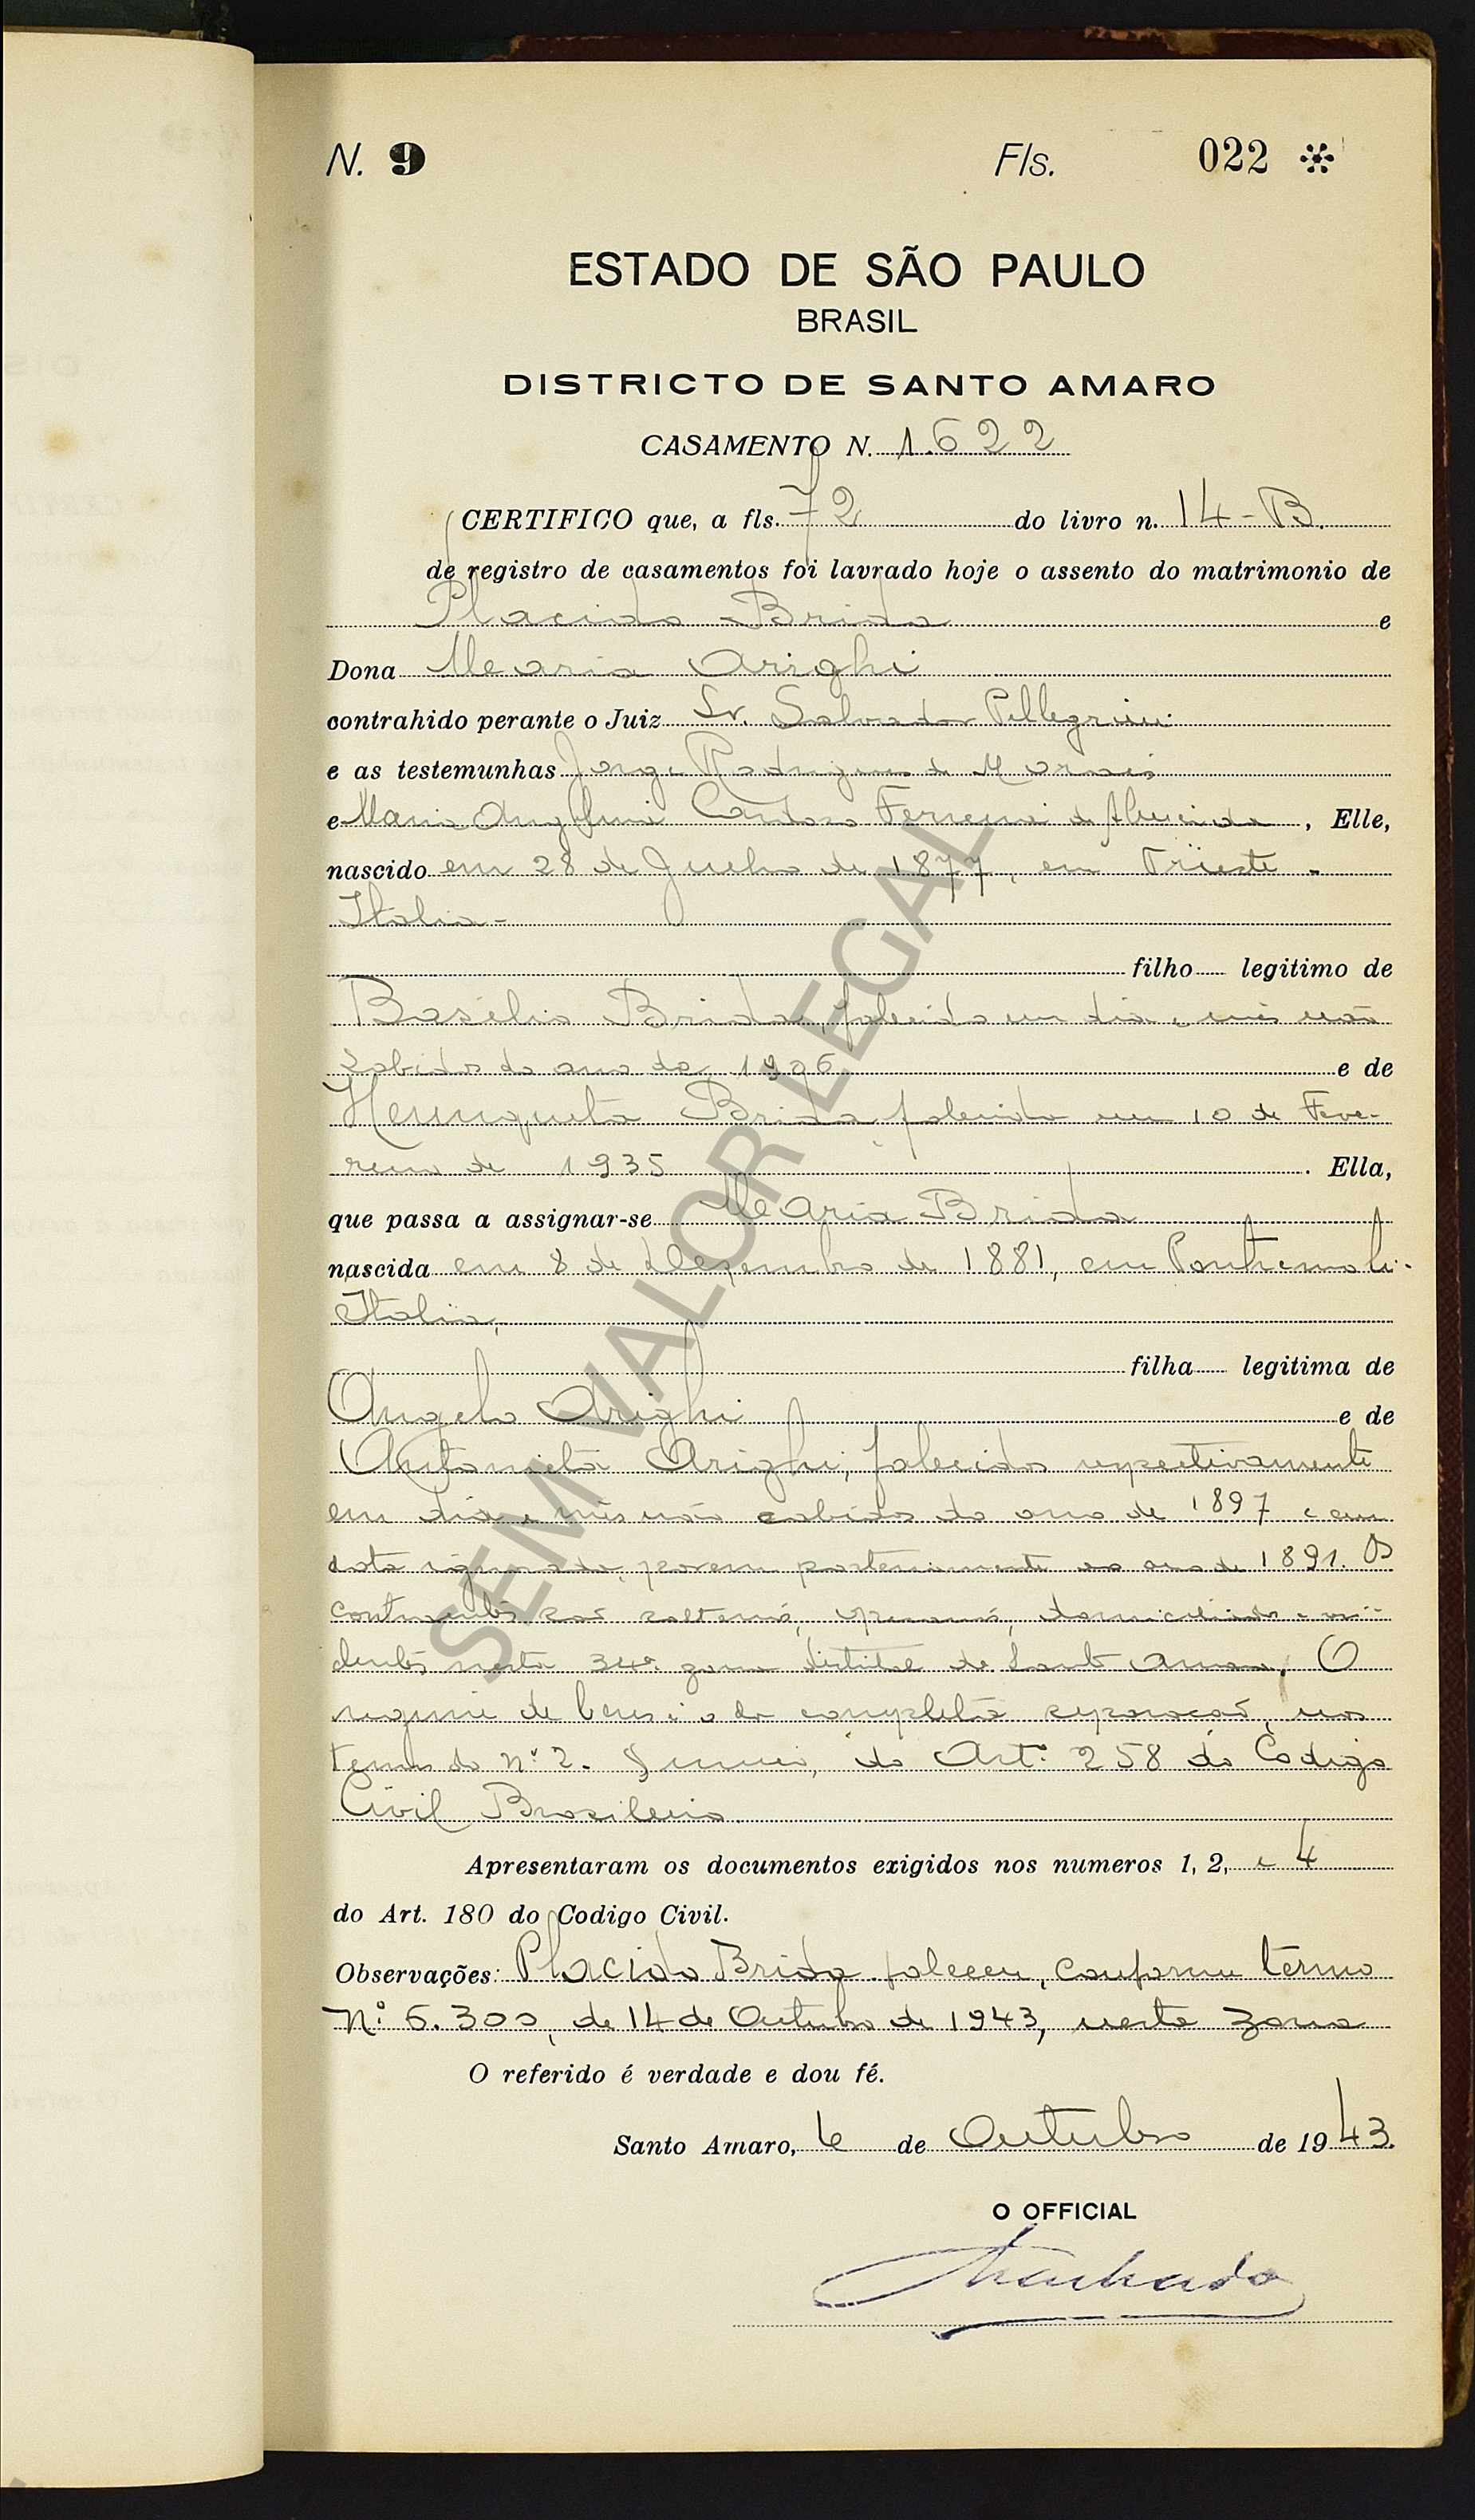 N. 9 Fls. 022
ESTADO DE SÃO PAULO
BRASIL
DISTRICTO DE SANTO AMARO
CASAMENTO N. 1.622
CERTIFICO que, a fls. 72 do livro n. 14-B.
de registro de casamentos foi lavrado hoje o assento do matrimonio de
Placido Brida e
Dona Maria Arighi
contrahido perante o Juiz Sr. Salvador Pellegrini
e as testemunhas Jorge Rodrigues de Moraes
e Maria Angelina Cardoso Ferreira de Almeida, Elle,
nascido em 28 de Junho de 1877, em Trieste -
Italia-
filho legitimo de
Basilio Brida, falecido em dia e mês não
sabidos do ano de 1906 e de
Henriqueta Brida, falecida em 10 de Feve-
reiro de 1935. Ella,
que passa a assignar-se Maria Brida
nascida em 8 de Dezembro de 1881, em Pontremoli-
Italia,
filha legitima de
Angelo Arighi e de
Antonieta Arighi, falecidos respectivamente
em dia e mês não sabidos do ano de 1897 e em
data ignorada, porem posteriormente ao ano de 1891. Os
contraentes são solteiros, domiciliados e resi-
dentes nesta 34ª zona distrital de Santo Amaro. O
regime de bens é o da completa separação, nos
termos do nº 2. do Art. 258 do Codigo
Civil Brasileiro.
Apresentaram os documentos exigidos nos numeros 1, 2, e 4
do Art. 180 do Codigo Civil.
Observações: Placido Brida faleceu, conforme termo
Nº 6.300, de 14 de Outubro de 1943, nesta zona
O referido é verdade e dou fé.
Santo Amaro, 6 de Outubro de 1943.
O OFFICIAL
Machado
SEM VALOR LEGAL